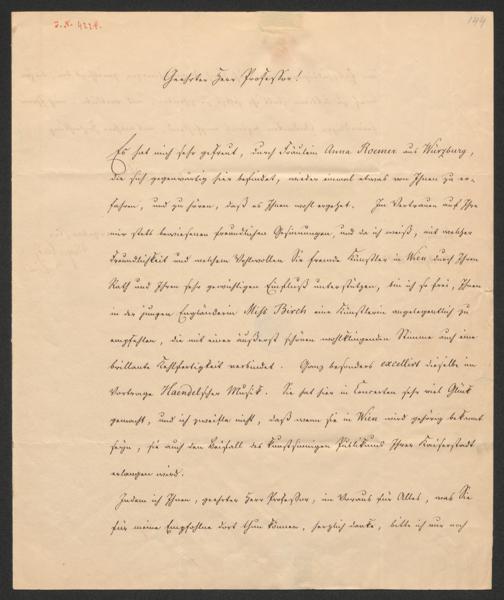 J.N. 4228.
144
Geehrter Herr Professor!
Es hat mich sehr gefreut, durch Fräulein Anna Roemer aus Würzburg,
die sich gegenwärtig hier befindet, wieder einmal etwas von Ihnen zu er-
fahren, und zu hören, daß es Ihnen wohl ergehet. Im Vertrauen auf Ihre
mir stets bewiesenen freundlichen Gesinnungen, und da ich weiß, mit welcher
Freundlichkeit und welchem Wohlwollen Sie fremde Künstler in Wien durch Ihren
Rath und Ihren sehr gewichtigen Einfluß unterstützen, bin ich so frei, Ihnen
in der jungen Engländerin Miss Birch eine Künstlerin angelegentlich zu
empfehlen, die mit einer äußerst schönen wohlklingenden Stimme auch eine
brillante Kehlfertigkeit verbindet. Ganz besonders excellirt dieselbe im
Vortrage Haendel'scher Musik. Sie hat hier in Concerten sehr viel Glück
gemacht, und ich zweifle nicht, daß wenn sie in Wien wird gehörig bekannt
seyn, sie auch den Beifall des kunstsinnigen Publikums Ihrer Kaiserstadt
erlangen wird.
Indem ich Ihnen, geehrter Herr Professor, im Voraus für Alles, was Sie
für meine Empfohlne dort thun können, herzlich danke, bitte ich nur noch